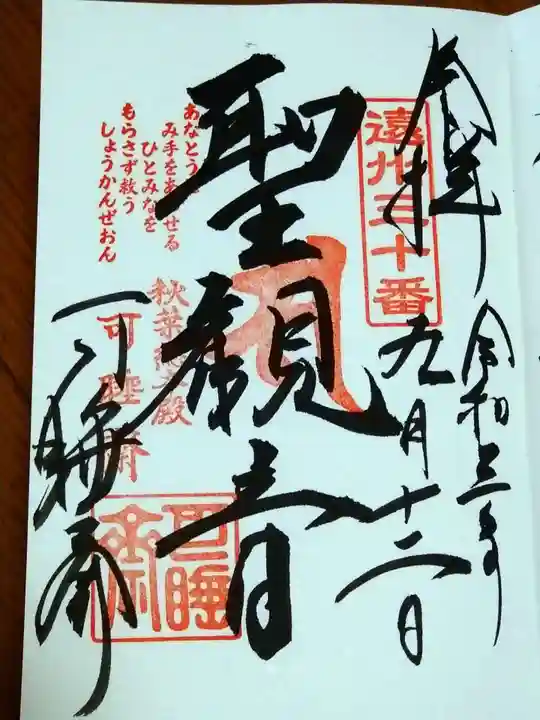 奉拝
令和三年
九月十二日
遠州三十番
聖観音
あなとう
み手をあ せる
ひとみなを
もらさず救う
しょうかんぜおん
秋葉總本殿
可睡斎
可睡齋
可睡斎